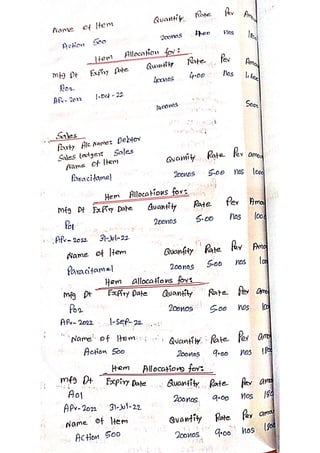 Name of Item Quantity Rate Per
Action 500 200nos nos
Item Allocation for:
Mfg Dt Expiry Date Quantity Rate Per
400nos 4.00 nos
Apr-2022 1-Oct-22

Sales
Party A/c Name: Debtor
Sales ledger: Sales
Name of Item Quantity Rate Per
Paracitamel 200nos 5.00 nos
Item Allocations for:
Mfg Dt Expiry Date Quantity Rate Per
P01 200nos 5.00 nos
Apr-2022 31-Jul-22
Name of Item Quantity Rate Per
Paracitamel 200nos 5.00 nos
Item allocations for:
Mfg Dt Expiry Date Quantity Rate Per
P02 200nos 5.00 nos
Apr-2022 1-Sep-22
Name of Item Quantity Rate Per
Action 500 200nos 9.00 nos
Item Allocations for:
Mfg Dt Expiry Date Quantity Rate Per
A01 200nos 9.00 nos
Apr-2022 31-Jul-22
Name of Item Quantity Rate Per
Action 500 200nos 9.00 nos